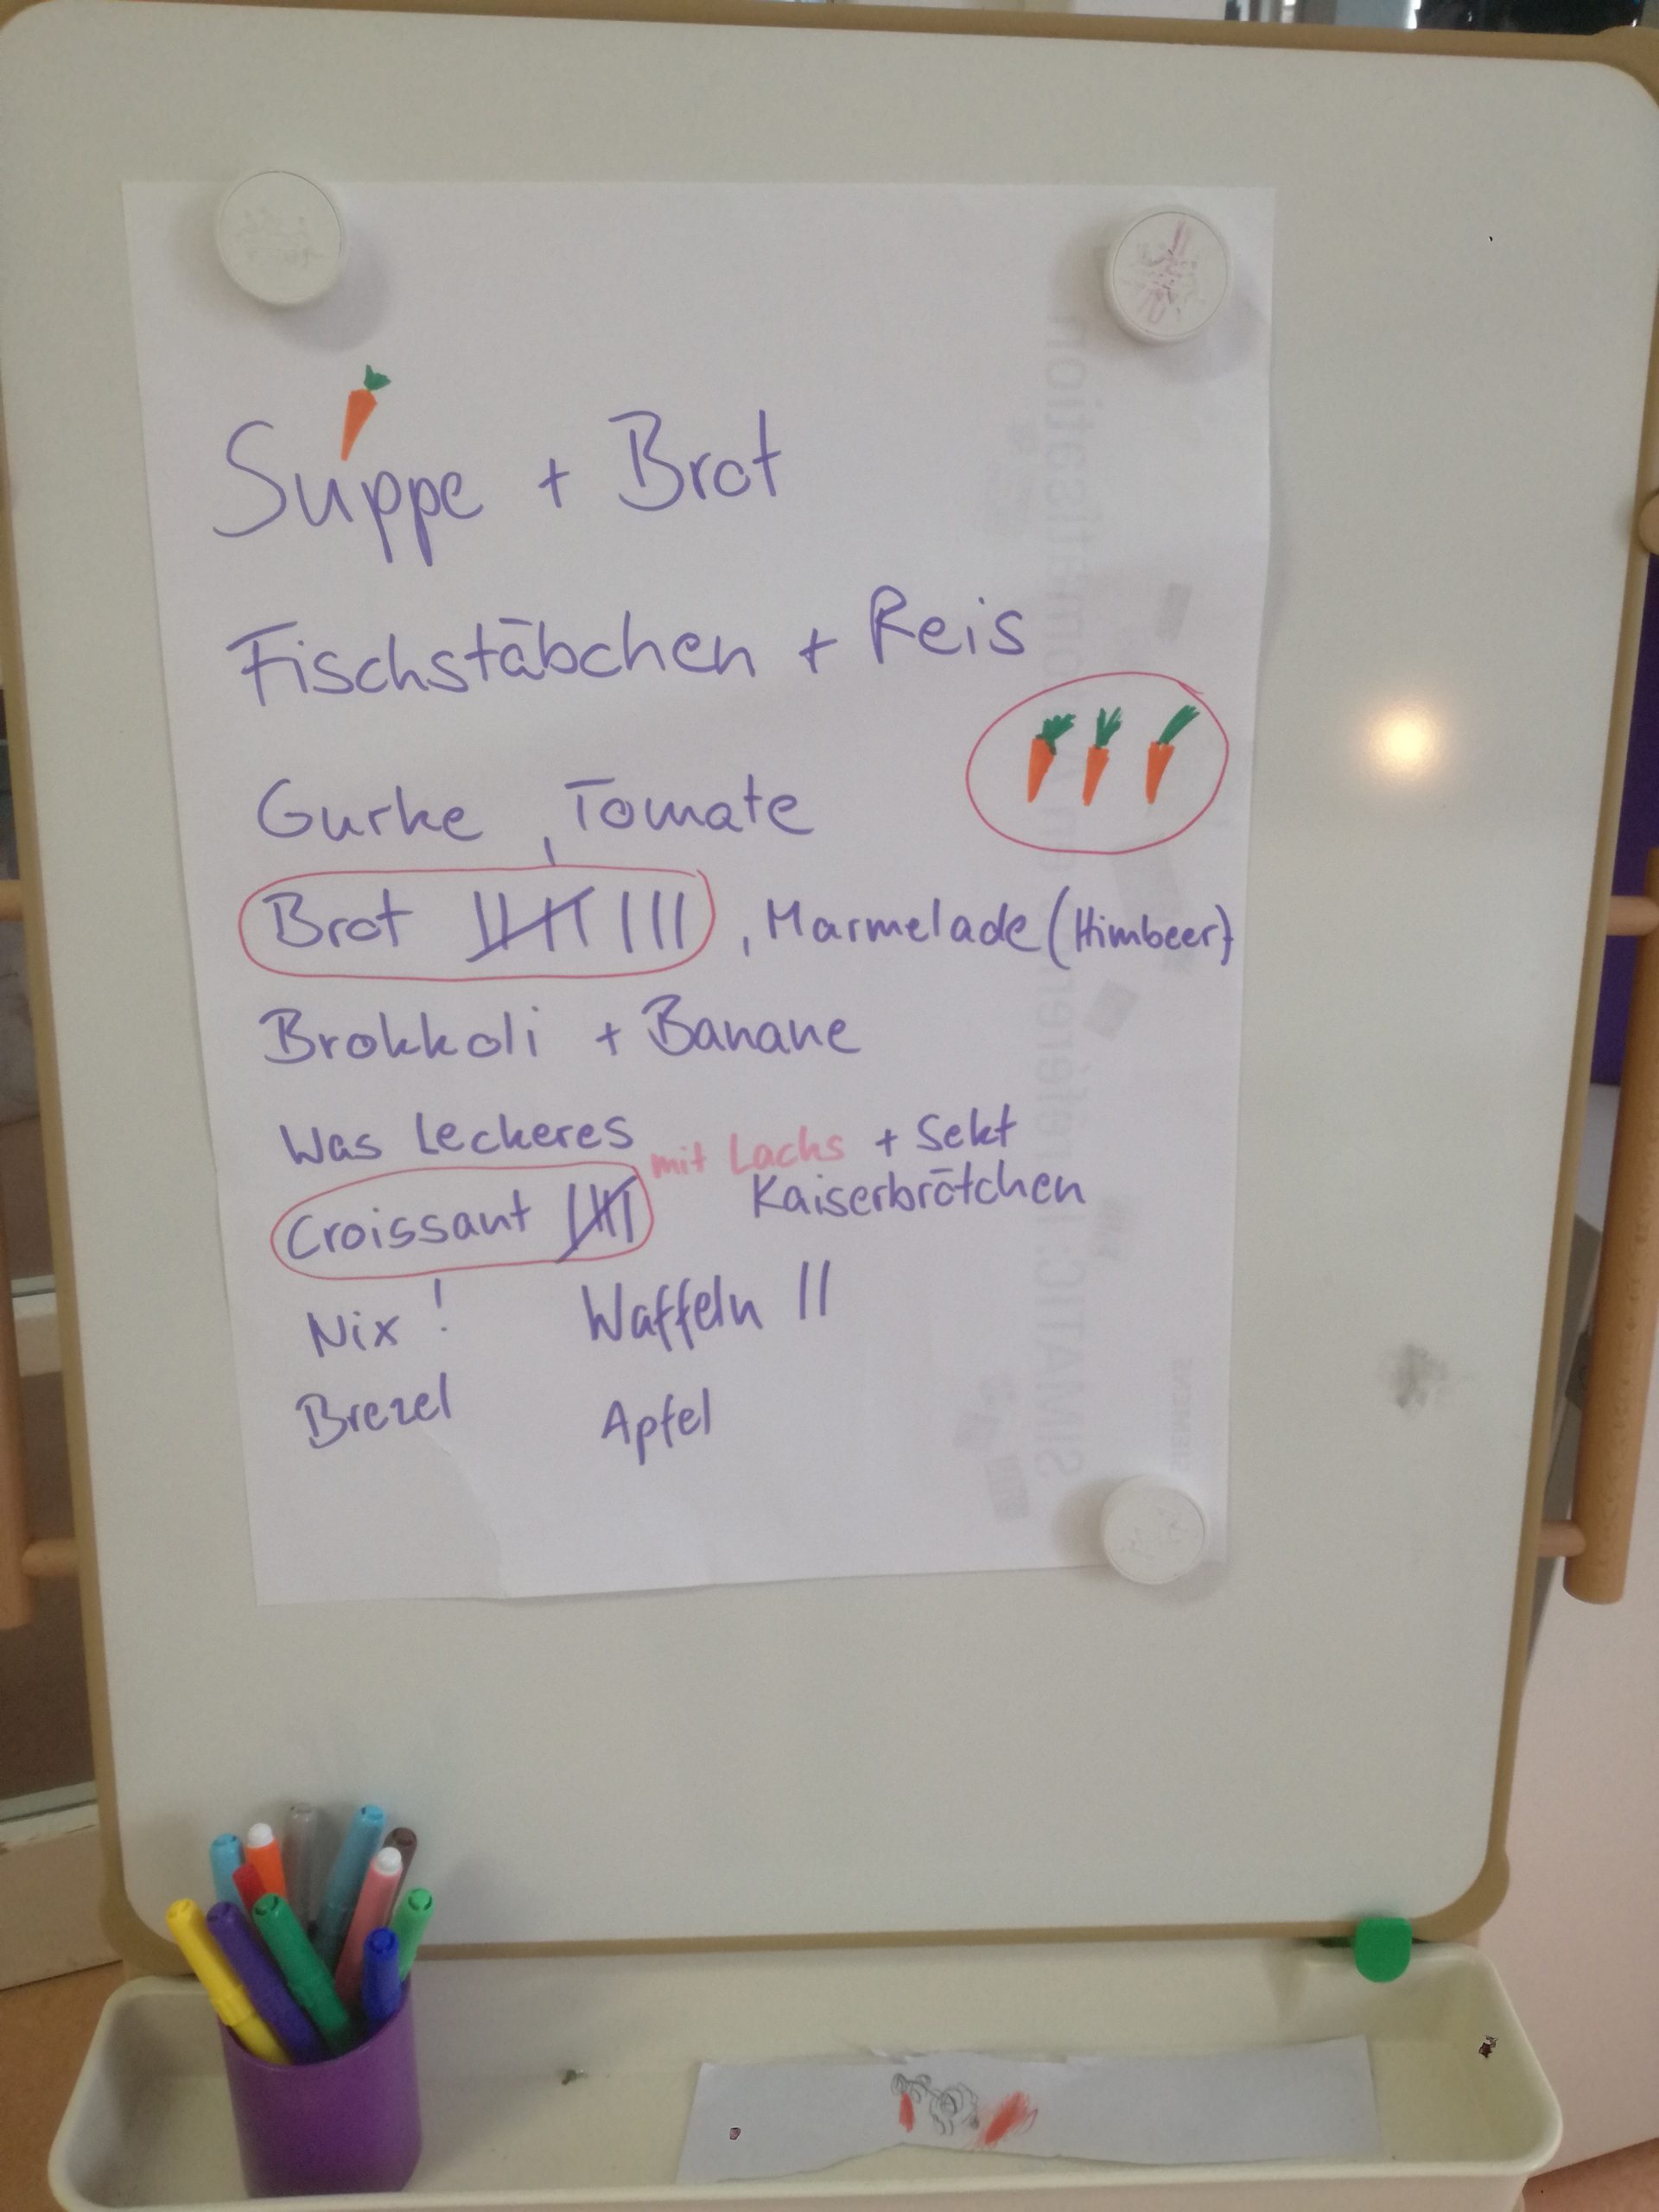 Suppe + Brot
Fischstäbchen + Reis
Gurke, Tomate
Brot |||| |||, Marmelade (Himbeer)
Brokkoli + Banane
Was Leckeres mit Lachs + Sekt
Croissant |||| Kaiserbrötchen
Nix! Waffeln ||
Brezel Apfel
SIEMENS